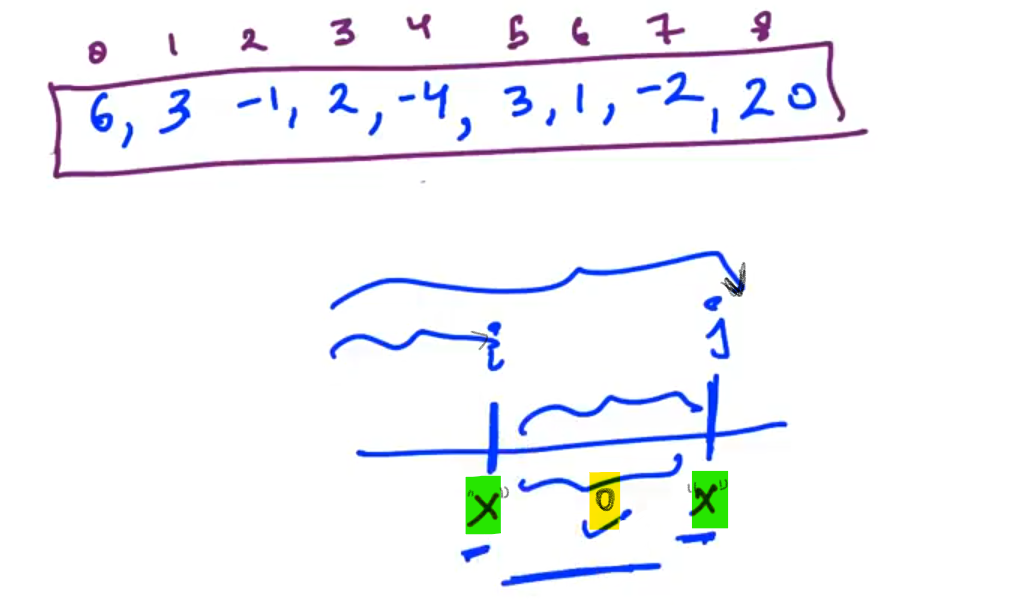 0 1 2 3 4 5 6 7 8
6, 3 -1, 2, -4, 3, 1, -2, 20
i j
"x" 0 "x"